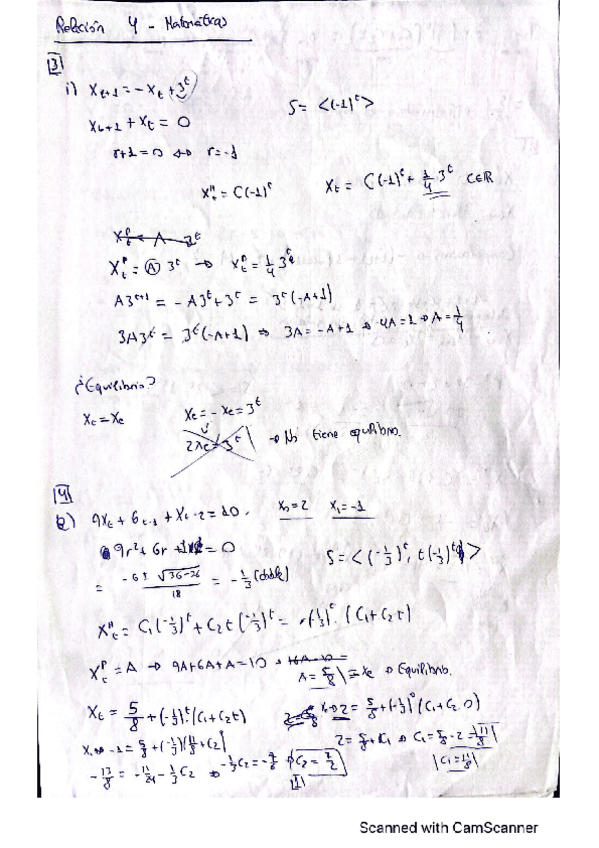 Relación 4 - Matemáticas
3
i) X_{t+1} = -X_t + 3^t
S = <(-1)^t>
X_{t+1} + X_t = 0
r+1=0 ↔ r=-1
X_t^H = C(-1)^t
X_t = C(-1)^t + 1/4 3^t C∈R
X_t^P = A 3^t
X_t^P = A 3^t → X_t^P = 1/4 3^t
A3^{t+1} = -A3^t + 3^t = 3^t(-A+1)
3A3^t = 3^t(-A+1) ⇒ 3A = -A+1 ⇒ 4A=1 ⇒ A=1/4
¿Equilibrio?
X_t = X_e
X_e = -X_e = 3^t
2X_e = 3^t → No tiene equilibrio.
4
9X_t + 6_{t-1} + X_{t-2} = 10. X_0=2 X_1=-1
9r²+6r = 0
S = <(-1/3)^t, t(-1/3)^t>
= -6± √36-36 / 18 = -1/3 (doble)
X_t^H = C_1(-1/3)^t + C_2 t(-1/3)^t = (-1/3)^t (C_1+C_2t)
X_t^P = A → 9A+6A+A=10
A = 5/8 = X_e → Equilibrio.
X_t = 5/8 + (-1/3)^t (C_1+C_2t)
2 = 5/8 + (-1/3)^0 (C_1+C_2·0)
-1 = 5/8 + (-1/3)(11/8+C_2)
2 = 5/8+C_1 → C_1 = 5/8 - 2 = 11/8
-13/8 = -11/24 - 1/3 C_2 ⇒ -1/3 C_2 = -7/6 C_2 = 7/2
C_1 = 11/8
Scanned with CamScanner